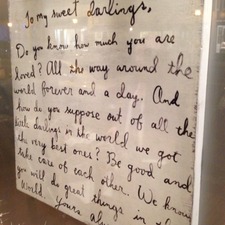 To my sweet darlings,
Do you know how much you are
loved? All the way around the
world forever and a day. And
how do you suppose out of all the
darlings in the world we got
the very best ones? Be good and
take care of each other. We know
you will do great things in the
World. Yours